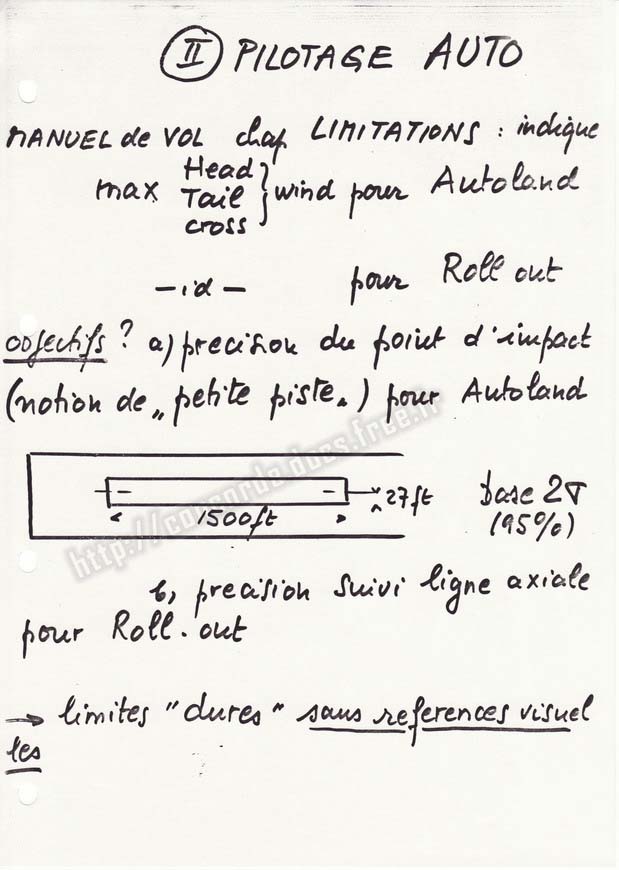 II PILOTAGE AUTO
MANUEL de VOL chap LIMITATIONS : indique
max Head Tail cross } wind pour Autoland
- id - pour Roll out
objectifs ? a) precision du point d'impact
(notion de „ petite piste „) pour Autoland
1500ft 27ft base 2σ
(95%)
b, precision suivi ligne axiale
pour Roll.out
→ limites "dures" sans references visuel
les
http://concorde.docs.free.fr